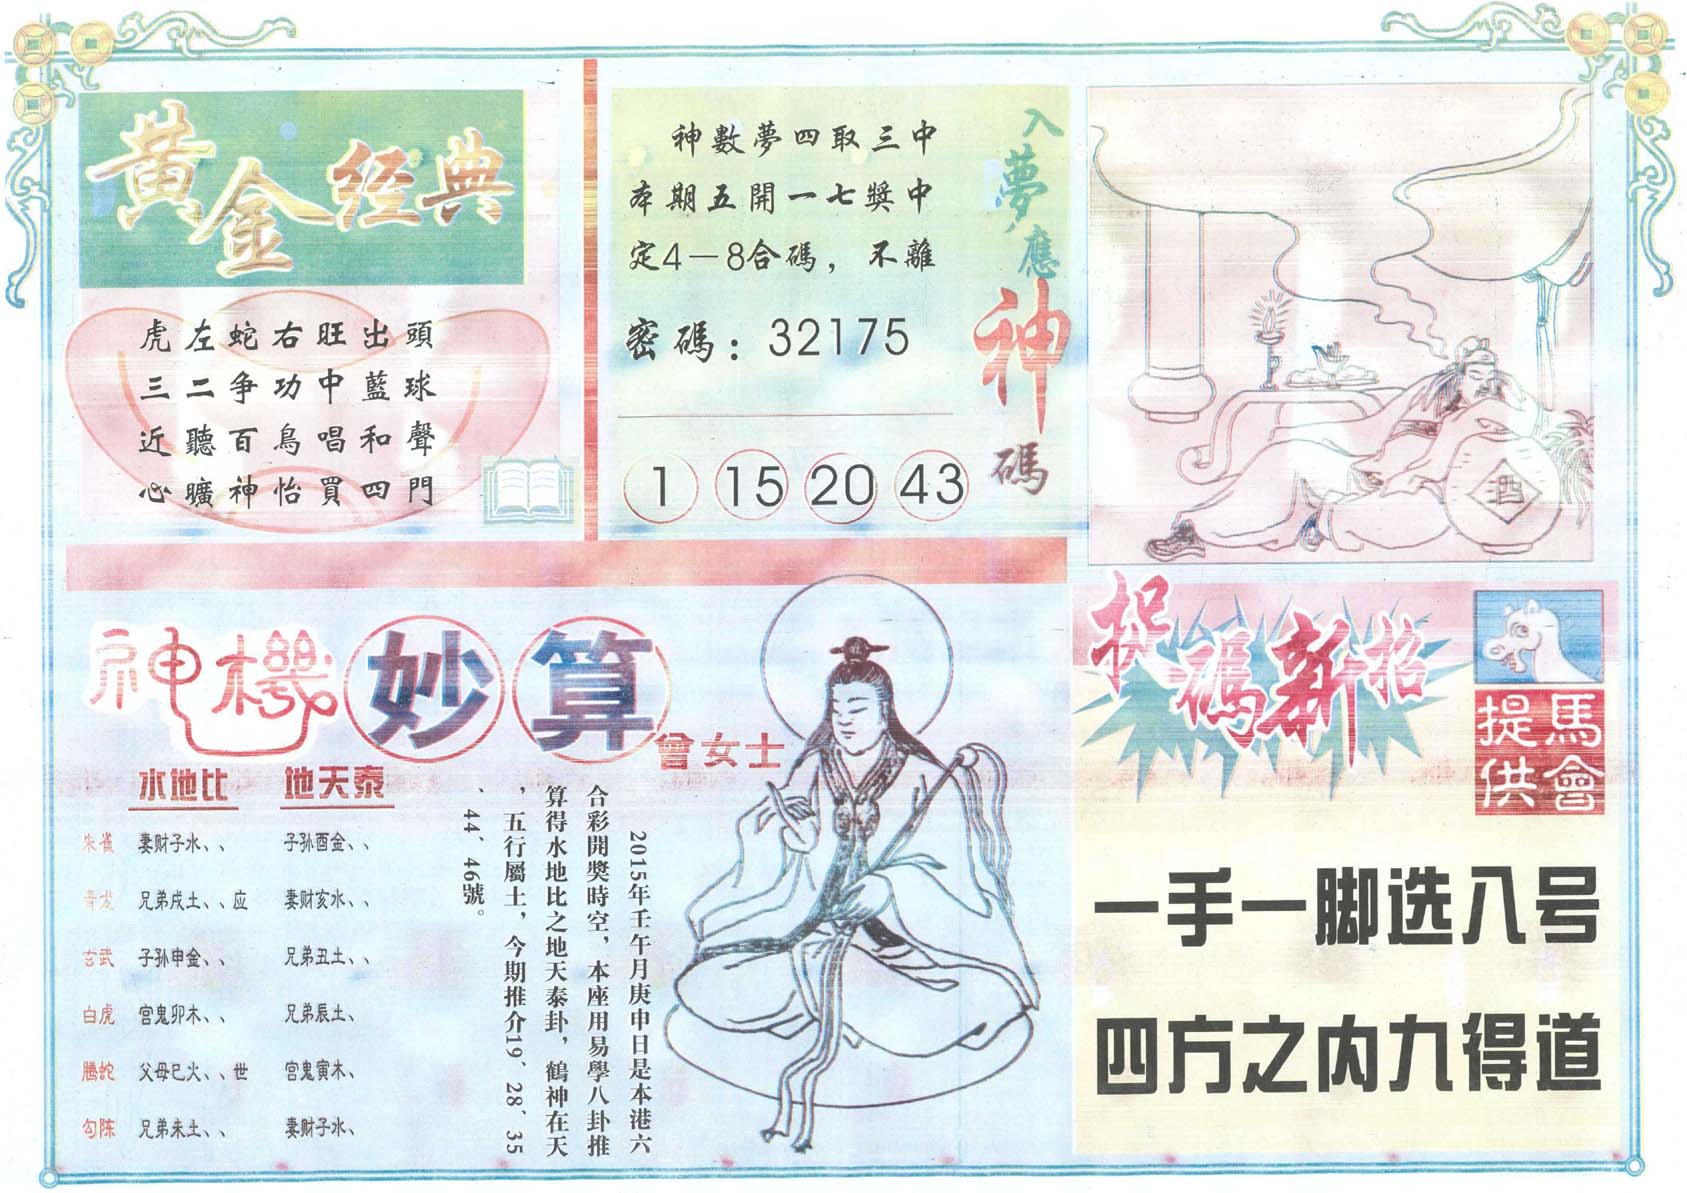 黃金经典
虎左蛇右旺出頭
三二争功中藍球
近聽百鳥唱和聲
心曠神怡買四門
入夢應神碼
神數夢四取三中
本期五開一七獎中
定4－8合碼，不離
密碼：32175
1 15 20 43
酒
神機妙算
曾女士
水地比 地天泰
朱雀 妻财子水、、 子孙酉金、、
青龙 兄弟戌土、、应 妻财亥水、、
玄武 子孙申金、、 兄弟丑土、、
白虎 宫鬼卯木、、 兄弟辰土、
騰蛇 父母巳火、、世 宫鬼寅木、
勾陈 兄弟未土、、 妻财子水、
2015年壬午月庚申日是本港六
合彩開獎時空，本座用易學八卦推
算得水地比之地天泰卦，鶴神在天
，五行屬土，今期推介19、28、35
、44、46號。
捉碼新招
馬會
提供
一手一脚选八号
四方之内九得道